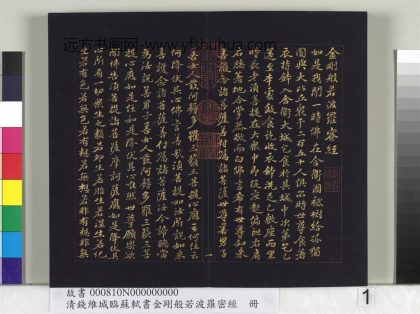 远方书画网-www.yfshuhua.com
金剛般若波羅密經
如是我聞一時佛在舍衛國祇樹給孤獨
園與大比丘眾千二百五十人俱爾時世尊食時著
衣持鉢入舍衛大城乞食於其城中次第乞已
還至本處飯食訖收衣鉢洗足已敷座而坐
時長老須菩提在大眾中即從座起偏袒右肩
右膝著地合掌恭敬而白佛言希有世尊如來
善護念諸菩薩善付囑諸菩薩世尊善男子
善女人發阿耨多羅三藐三菩提心應云何住云
何降伏其心佛言善哉善哉須菩提如汝所說如來
善護念諸菩薩善付囑諸菩薩汝今諦聽當
為汝說善男子善女人發阿耨多羅三藐三菩
提心應如是住如是降伏其心唯然世尊願樂欲
聞佛告須菩提諸菩薩摩訶薩應如是降伏其
心所有一切眾生之類若卵生若胎生若濕生若化
生若有色若無色若有想若無想若非有想非無
故書 000810N000000000
清錢維城臨蘇軾書金剛般若波羅密經 冊
1